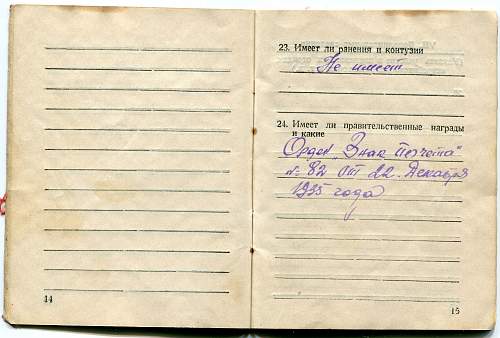 14
23. Имеет ли ранения и контузии
Не имеет
24. Имеет ли правительственные награды
и какие
Орден „Знак Почета"
№ 82 от 22 Декабря
1935 года
15